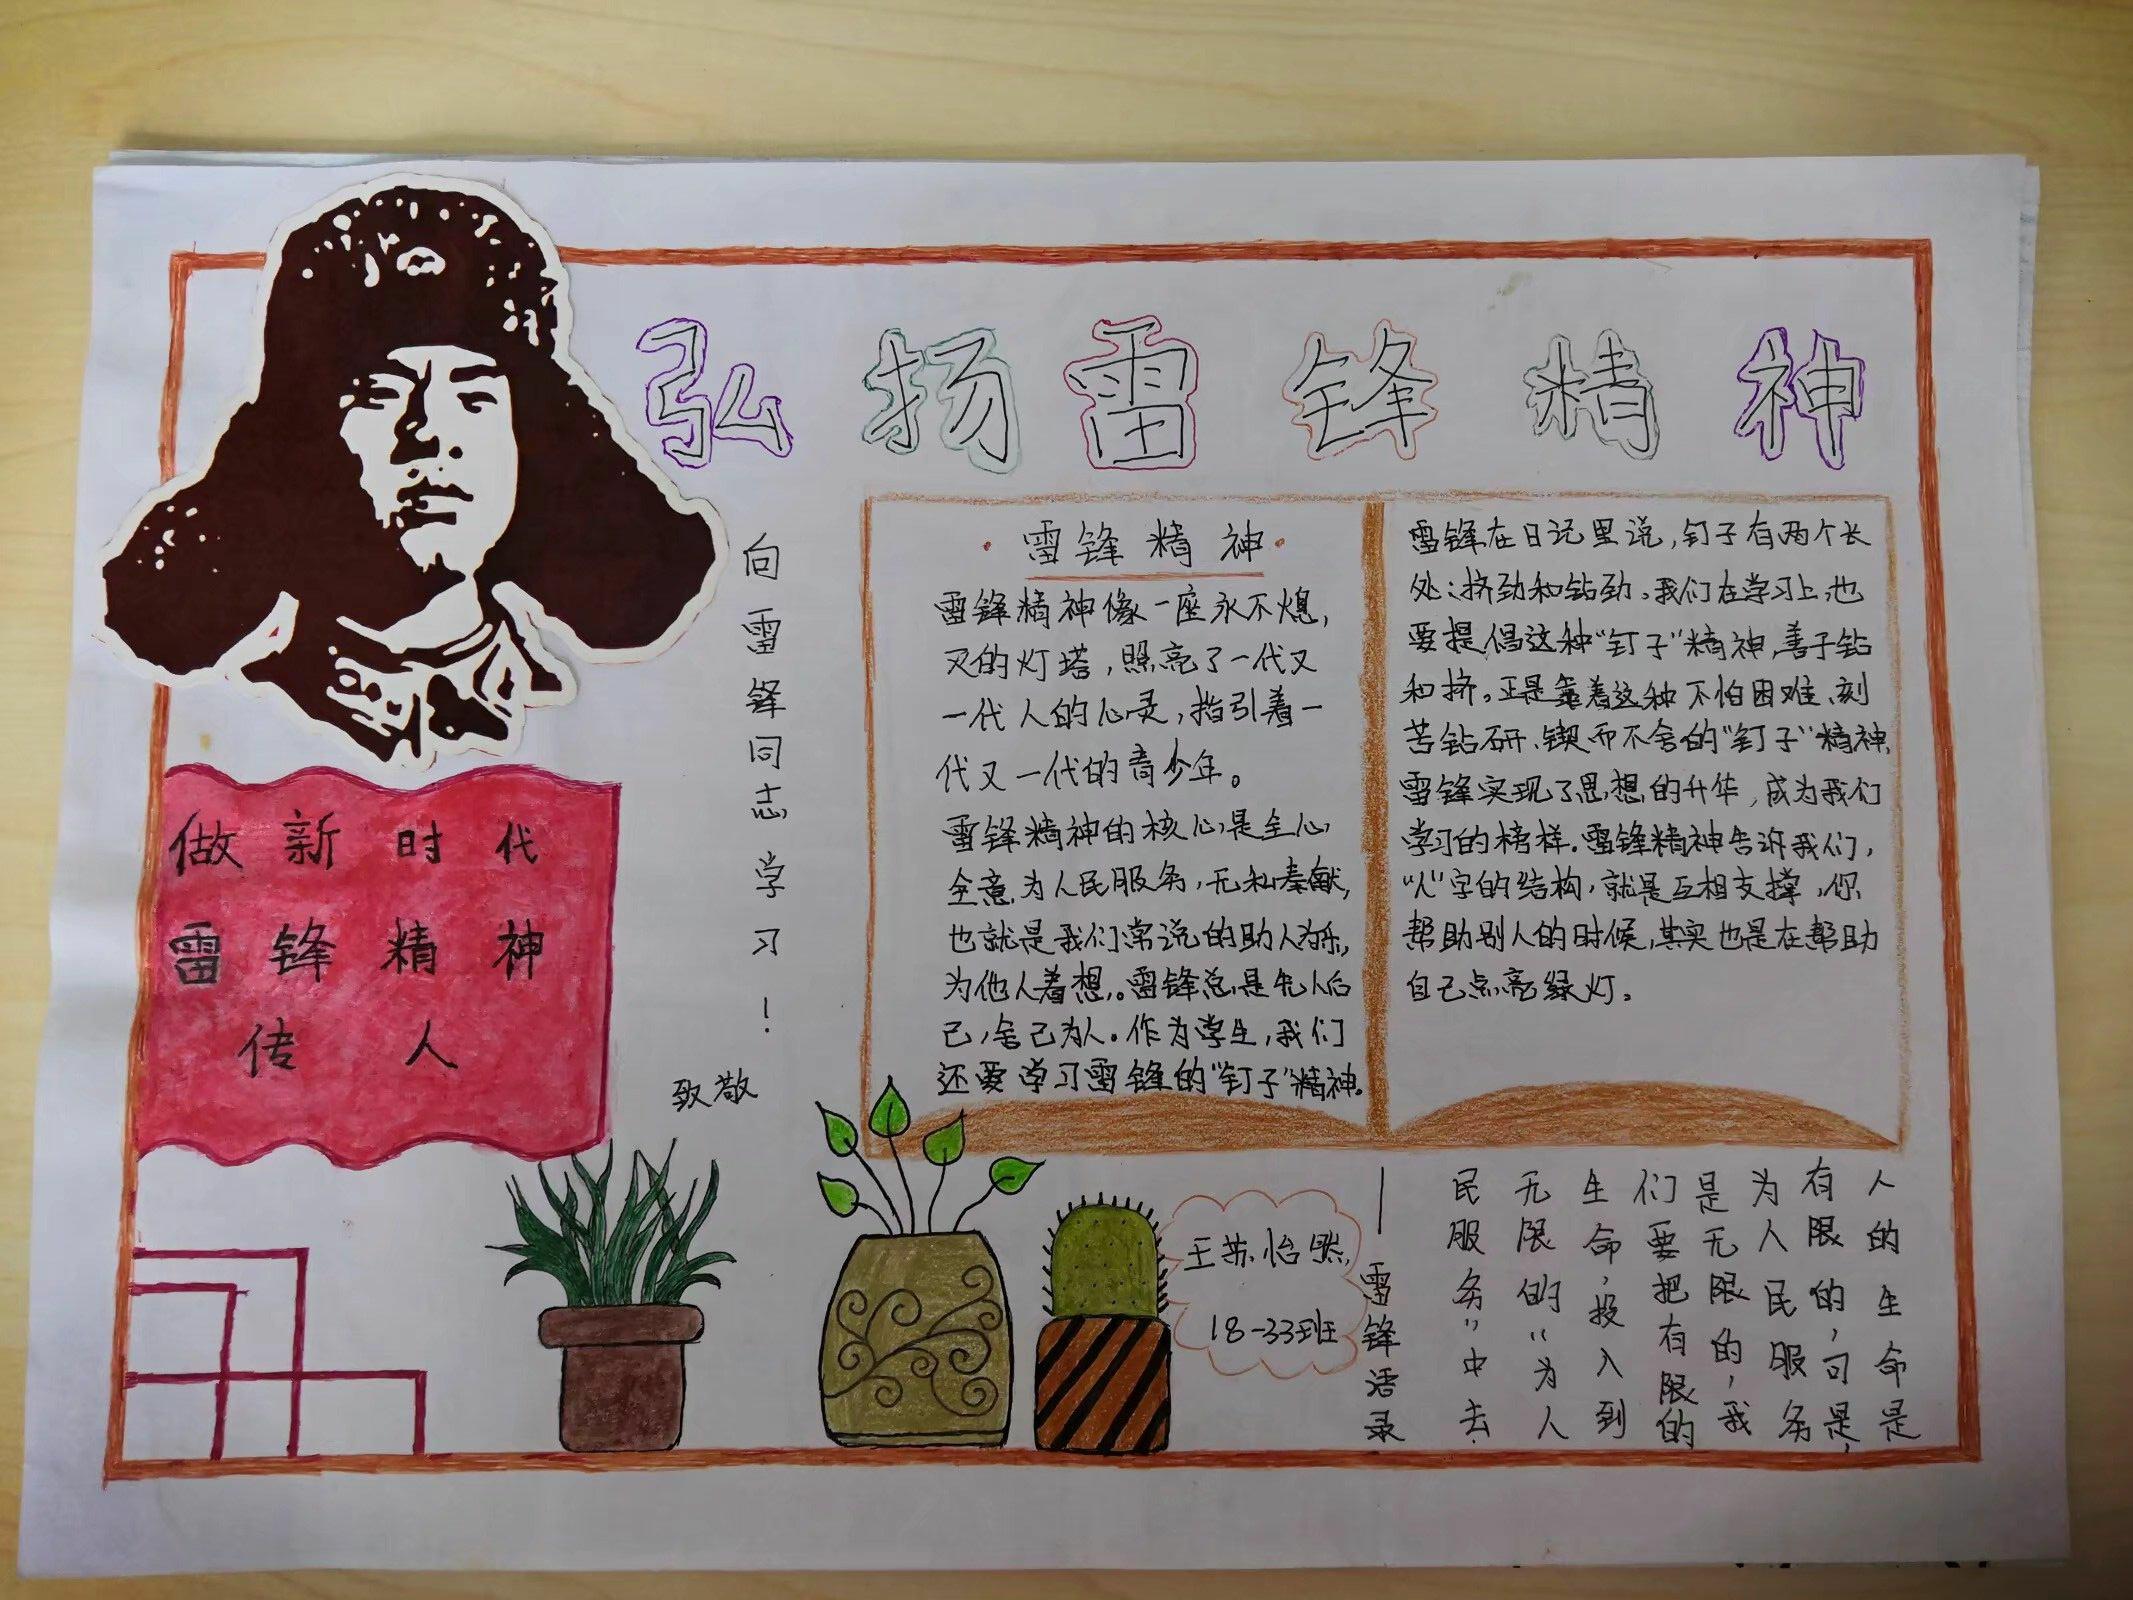 弘扬雷锋精神
向雷锋同志学习！
致敬
做新时代
雷锋精神
传人
·雷锋精神·
雷锋精神像一座永不熄,
灭的灯塔,照亮了一代又
一代人的心灵,指引着一
代又一代的青少年。
雷锋精神的核心是全心
全意为人民服务,无私奉献,
也就是我们常说的助人为乐,
为他人着想,。雷锋总是先人后
己,舍己为人。作为学生,我们
还要学习雷锋的“钉子”精神。
雷锋在日记里说,钉子有两个长
处:挤劲和钻劲。我们在学习上,也
要提倡这种“钉子”精神,善于钻
和挤。正是靠着这种不怕困难、刻
苦钻研、锲而不舍的“钉子”精神,
雷锋实现了思想的升华,成为我们
学习的榜样。雷锋精神告诉我们,
“人”字的结构,就是互相支撑,你
帮助别人的时候,其实也是在帮助
自己点亮绿灯。
人的生命是
有限的,可是,
为人民服务
是无限的,我
们要把有限的
生命,投入到
无限的“为人
民服务”中去
——雷锋语录
王苏怡然
18-33班